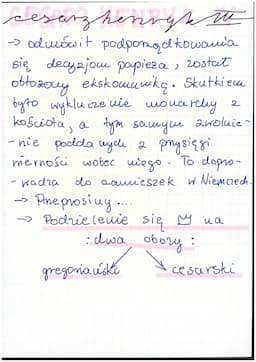 cesarz henryk IV
→ odmówił podporządkowania
się decyzjom papieża, został
obłożony ekskomuniką. Skutkiem
było wykluczenie monarchy z
kościoła, a tym samym zwolnie-
-nie poddanych z przysięgi
wierności wobec niego. To dopro-
-wadza do zamieszek w Niemczech.
→ Przeprosiny ....
→ Podzielenie się na
:dwa obozy:
gregoriański cesarski